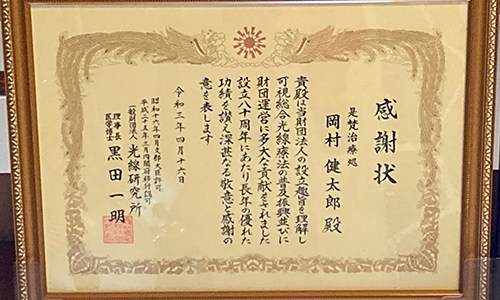 感謝状
是梵治療処
岡村 健太郎 殿
貴殿は当財団法人の設立趣旨を理解し
可視総合光線療法の普及振興並びに
財団運営に多大な貢献をされました
設立八十周年にあたり長年の優れた
功績を讃え深甚なる敬意と感謝の
意を表します
令和三年四月十六日
昭和十六年四月文部大臣許可
平成二十五年三月内閣府移行認可
一般財団法人 光線研究所
理事長
医学博士 黒田一明